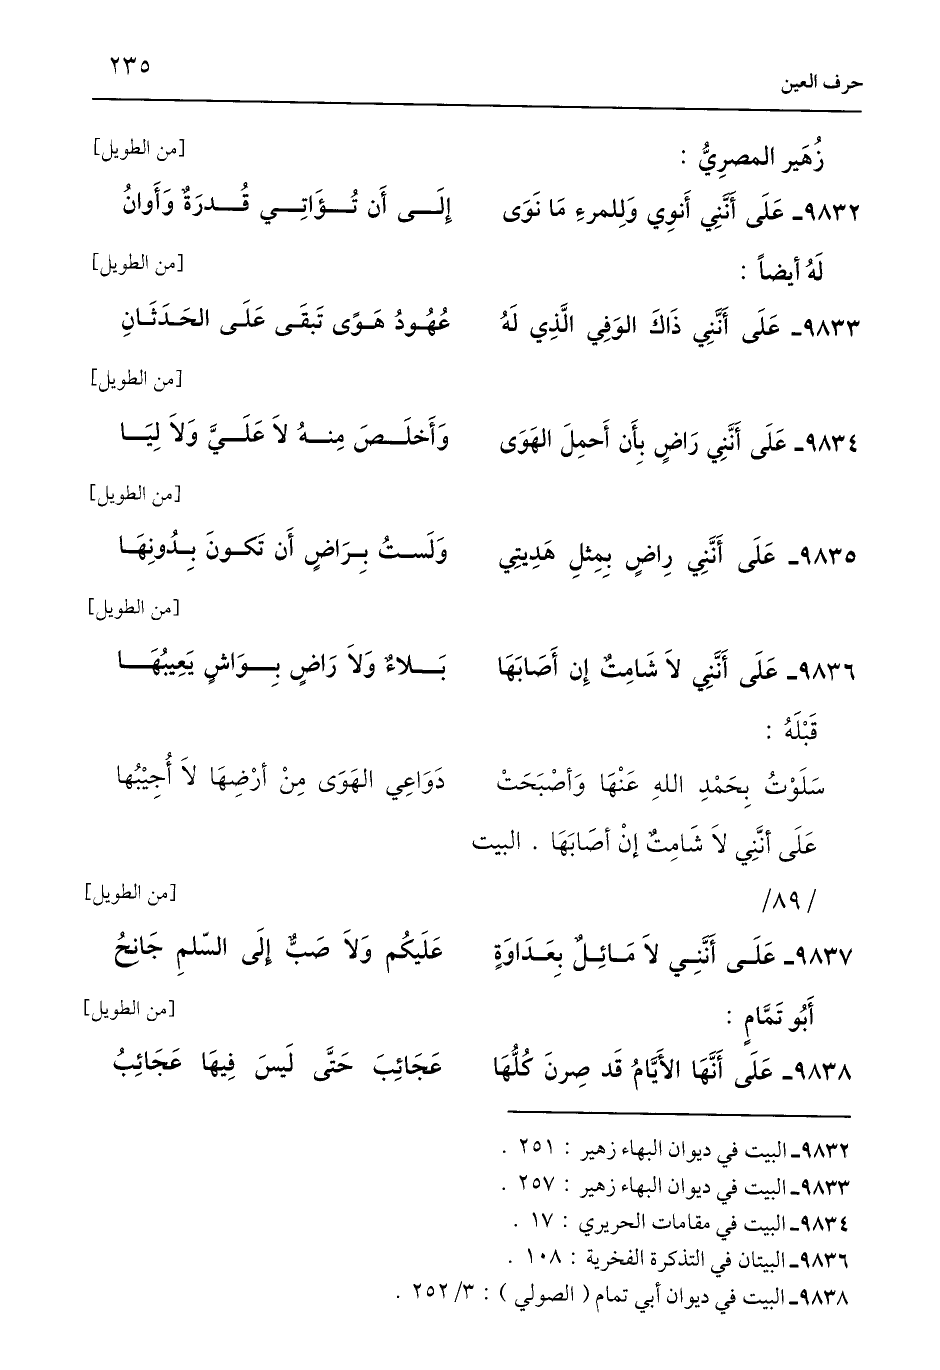 ٢٣٥
حرف العين
زُهَير المصرِيُّ : [من الطويل]
٩٨٣٢ـ عَلَى أَنَّنِي أَنوِي وَلِلمرءِ مَا نَوَى إِلَـــى أَن تُـــؤَاتِـــي قُـــدرَةٌ وَأَوانُ
لَهُ أيضاً : [من الطويل]
٩٨٣٣ـ عَلَى أَنَّنِي ذَاكَ الوَفِي الَّذِي لَهُ عُهُودُ هَوًى تَبقَى عَلَى الحَدَثَانِ
[من الطويل]
٩٨٣٤ـ عَلَى أَنَّنِي رَاضٍ بِأَن أَحمِلَ الهَوَى وَأَخلَصَ مِنهُ لاَ عَلَيَّ وَلاَ لِيَا
[من الطويل]
٩٨٣٥ـ عَلَى أَنَّنِي رِاضٍ بِمِثلِ هَدِيتِي وَلَستُ بِرَاضٍ أَن تَكونَ بِدُونِهَا
[من الطويل]
٩٨٣٦ـ عَلَى أَنَّنِي لاَ شَامِتٌ إِن أَصَابَهَا بَلاءٌ وَلاَ رَاضٍ بِوَاشٍ يَعِيبُهَا
قَبْلَهُ :
سَلَوْتُ بِحَمْدِ اللهِ عَنْهَا وَأصْبَحَتْ دَوَاعِي الهَوَى مِنْ أرْضِهَا لاَ أُجِيْبُها
عَلَى أنَّنِي لاَ شَامِتٌ إنْ أصَابَهَا . البيت
/٨٩/ [من الطويل]
٩٨٣٧ـ عَلَى أَنَّنِي لاَ مَائِلٌ بِعَدَاوَةٍ عَلَيكُم وَلاَ صَبٌّ إِلَى السّلمِ جَانِحُ
أَبُو تَمَّامٍ : [من الطويل]
٩٨٣٨ـ عَلَى أَنَّهَا الأَيَّامُ قَد صِرنَ كُلُّهَا عَجَائِبَ حَتَّى لَيسَ فِيهَا عَجَائِبُ
٩٨٣٢ـ البيت في ديوان البهاء زهير : ٢٥١ .
٩٨٣٣ـ البيت في ديوان البهاء زهير : ٢٥٧ .
٩٨٣٤ـ البيت في مقامات الحريري : ١٧ .
٩٨٣٦ـ البيتان في التذكرة الفخرية : ١٠٨ .
٩٨٣٨ـ البيت في ديوان أبي تمام ( الصولي ) : ٣/ ٢٥٢ .